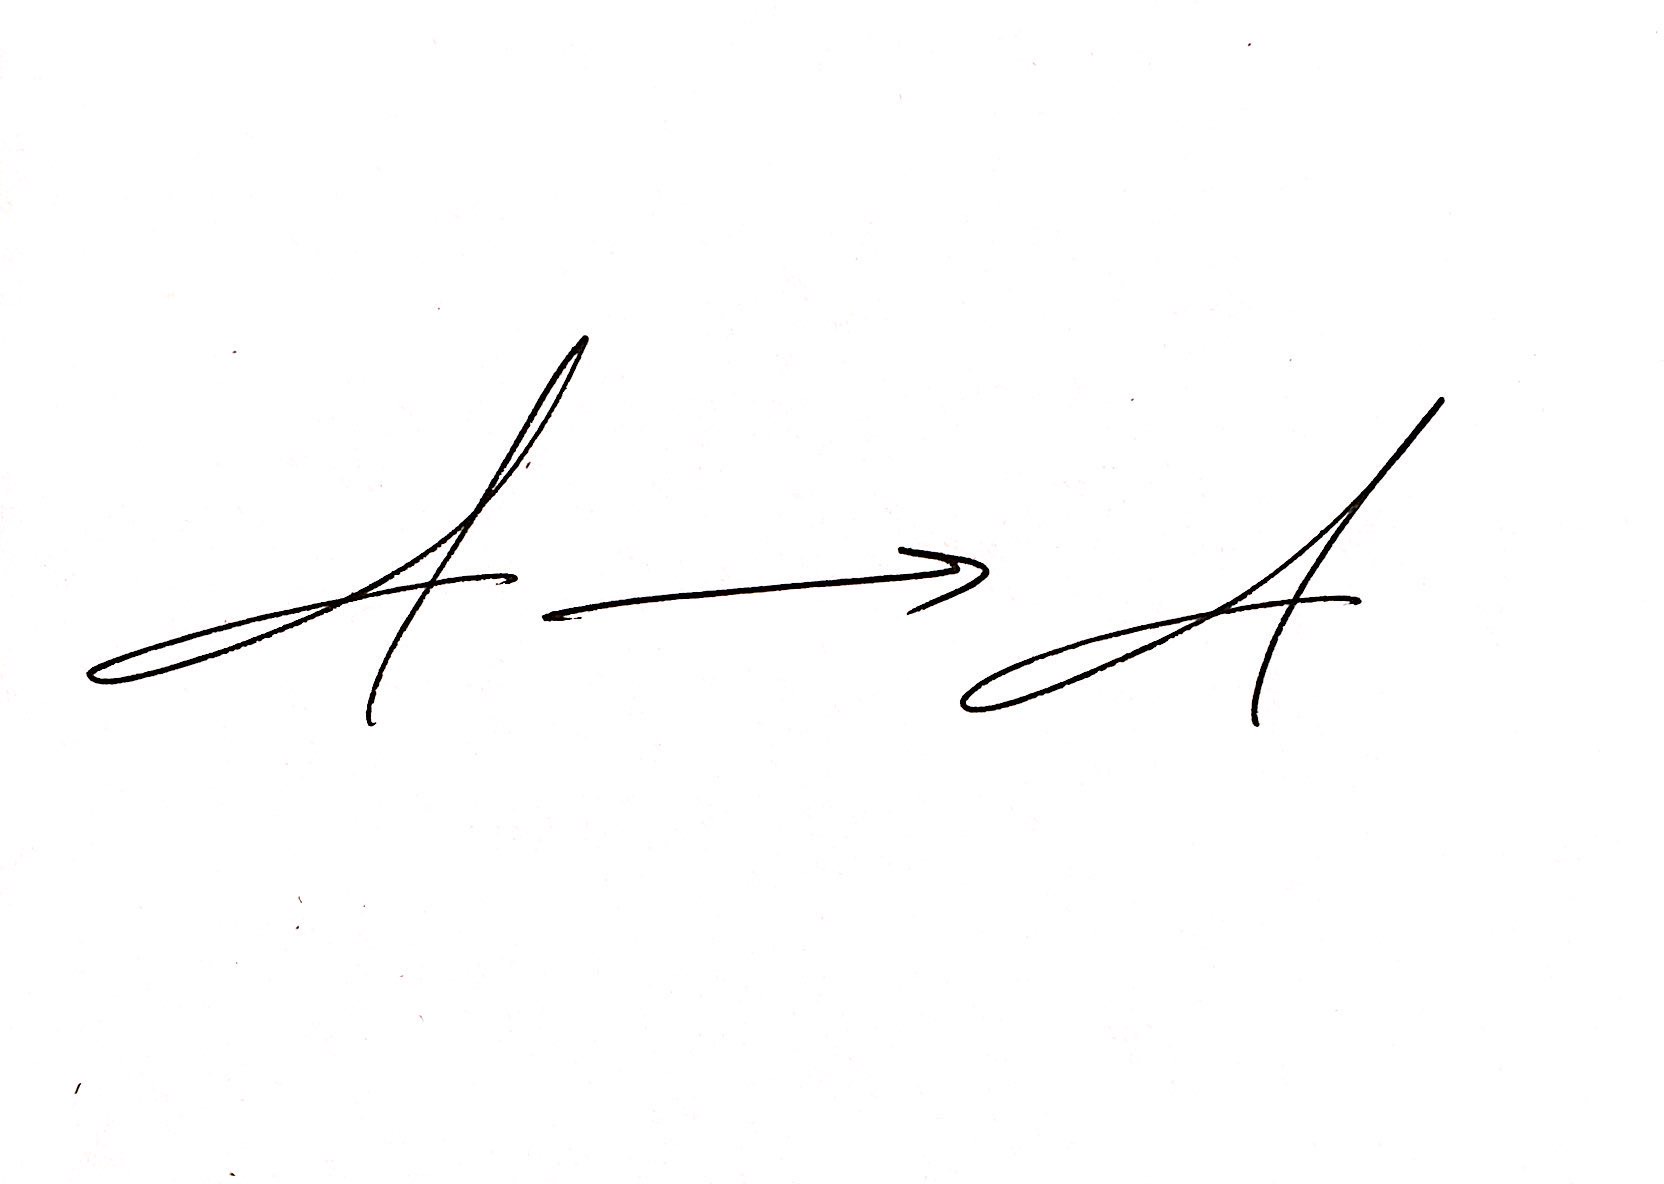 A → A